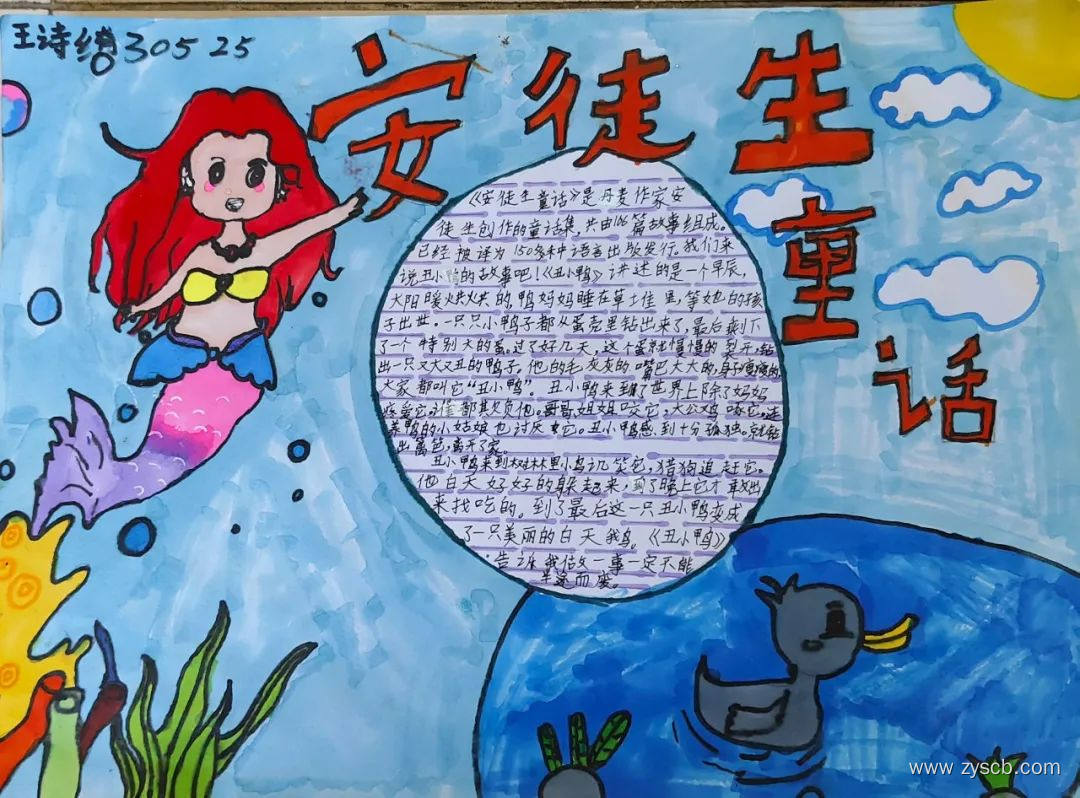 王诗绪 305 25
安徒生
童
话
《安徒生童话》是丹麦作家安
徒生创作的童话集，共由166篇故事组成。
已经被译为150多种语言出版发行。我们来
说丑小鸭的故事吧！《丑小鸭》讲述的是一个早晨，
太阳暖烘烘的，鸭妈妈睡在草堆里，等她的孩
子出世。一只只小鸭子都从蛋壳里钻出来了，最后剩下
了一个特别大的蛋。过了好几天，这个蛋就慢慢的裂开，钻
出一只又大又丑的鸭子，他的毛灰灰的嘴巴大大的，身子瘦瘦的
大家都叫它“丑小鸭”. 丑小鸭来到了世界上除了妈妈
疼爱它，谁都欺负他。哥哥姐姐咬它，大公鸡啄它。连
养鸭的小姑娘也讨厌它。丑小鸭感到十分孤独。就钻
出篱笆，离开了家。
丑小鸭来到树林里小鸟讥笑它，猎狗追赶它。
他白天好好的躲起来，到了晚上它才敢出
来找吃的。到了最后这一只丑小鸭变成
了一只美丽的白天鹅。《丑小鸭》
告诉我们做一事一定不能
半途而废。
www.zyscb.com